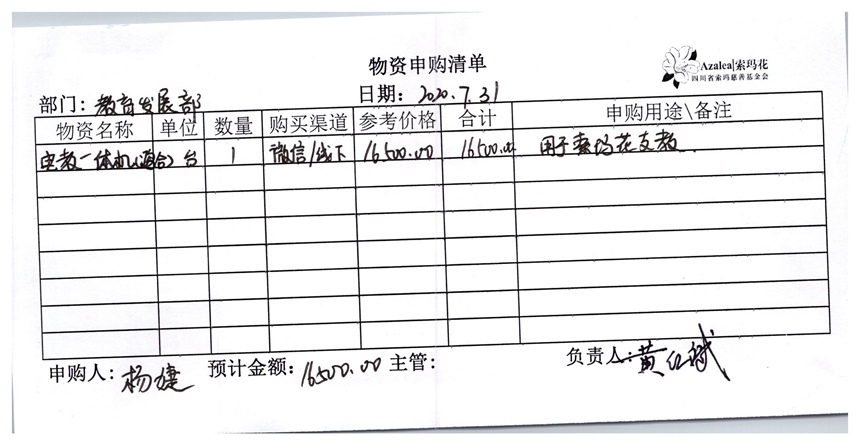 物资申购清单
Azalea|索玛花
四川省索玛慈善基金会
部门：教育发展部 日期：2020.7.31
物资名称 单位 数量 购买渠道 参考价格 合计 申购用途\备注
电教一体机 台 1 微信/线下 16500.00 16500.00 用于索玛花支教
申购人：杨婕 预计金额：16500.00 主管： 负责人：黄红斌